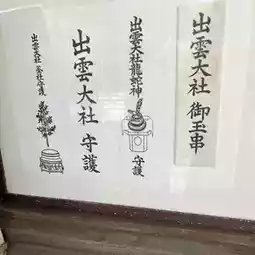 出雲大社 御玉串
出雲大社龍蛇神
守護
出雲大社 守護
出雲大社
守護